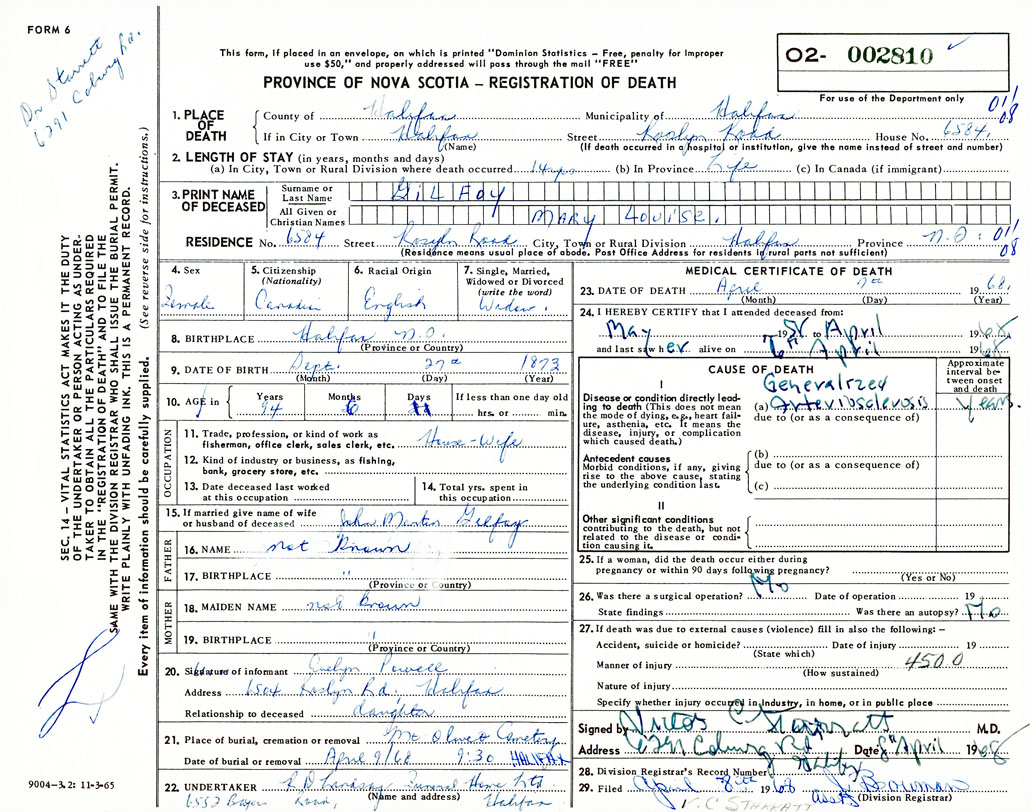 FORM 6
Dr Starrett
6291 Coburg Rd.
This form, if placed in an envelope, on which is printed "Dominion Statistics – Free, penalty for improper
use $50," and properly addressed will pass through the mail "FREE"
PROVINCE OF NOVA SCOTIA – REGISTRATION OF DEATH
O2- 002810
For use of the Department only
011
08
1. PLACE OF DEATH
County of Halifax Municipality of Halifax
If in City or Town Halifax Street Roslyn Road House No. 6584.
(Name) (If death occurred in a hospital or institution, give the name instead of street and number)
2. LENGTH OF STAY (in years, months and days)
(a) In City, Town or Rural Division where death occurred 14 yrs (b) In Province Life (c) In Canada (if immigrant)
3. PRINT NAME OF DECEASED
Surname or Last Name GILFOY
All Given or Christian Names MARY LOUISE.
RESIDENCE No. 6584 Street Roslyn Road City, Town or Rural Division Halifax Province N.S. 011
08
(Residence means usual place of abode. Post Office Address for residents in rural parts not sufficient)
4. Sex
Female
5. Citizenship (Nationality)
Canadian
6. Racial Origin
English
7. Single, Married, Widowed or Divorced (write the word)
Widow.
8. BIRTHPLACE Halifax N.S.
(Province or Country)
9. DATE OF BIRTH Sept. 27th 1873
(Month) (Day) (Year)
10. AGE in Years 94 Months 6 Days 11 If less than one day old
hrs. or min.
OCCUPATION
11. Trade, profession, or kind of work as
fisherman, office clerk, sales clerk, etc. House-Wife
12. Kind of industry or business, as fishing,
bank, grocery store, etc.
13. Date deceased last worked
at this occupation
14. Total yrs. spent in
this occupation
15. If married give name of wife
or husband of deceased John Martin Gilfoy
FATHER
16. NAME not Known
17. BIRTHPLACE "
(Province or Country)
MOTHER
18. MAIDEN NAME not Known
19. BIRTHPLACE "
(Province or Country)
20. Signature of informant Evelyn Powell
Address 6584 Roslyn Rd, Halifax
Relationship to deceased daughter
21. Place of burial, cremation or removal Mt Olivet Cemetery
Date of burial or removal April 9/68 9:30 HALIFAX
22. UNDERTAKER R D Lindsay Funeral Home Ltd
(Name and address)
6552 Bayers Road, Halifax
MEDICAL CERTIFICATE OF DEATH
23. DATE OF DEATH April 7th 1968.
(Month) (Day) (Year)
24. I HEREBY CERTIFY that I attended deceased from:
May 1958 to April 1968
and last saw her alive on 6th April 1968
CAUSE OF DEATH
Approximate interval between onset and death
I
Disease or condition directly leading to death (This does not mean the mode of dying, e.g., heart failure, asthenia, etc. It means the disease, injury, or complication which caused death.)
(a) Generalized Arteriosclerosis years.
due to (or as a consequence of)
Antecedent causes
Morbid conditions, if any, giving rise to the above cause, stating the underlying condition last.
(b)
due to (or as a consequence of)
(c)
II
Other significant conditions
contributing to the death, but not related to the disease or condition causing it.
25. If a woman, did the death occur either during
pregnancy or within 90 days following pregnancy?
(Yes or No)
26. Was there a surgical operation? No Date of operation 19
State findings Was there an autopsy? No
27. If death was due to external causes (violence) fill in also the following: –
Accident, suicide or homicide? Date of injury 19
(State which)
Manner of injury 450.0
(How sustained)
Nature of injury
Specify whether injury occurred in industry, in home, or in public place
Signed by Victor C Starratt M.D.
Address 6291 Coburg Rd Date 8 April 1968
Halifax
28. Division Registrar's Record Number
29. Filed April 8th 1968 J Bowman
Asst (Division Registrar)
V. C STARRATT
SEC. 14 – VITAL STATISTICS ACT MAKES IT THE DUTY
OF THE UNDERTAKER OR PERSON ACTING AS UNDER-
TAKER TO OBTAIN ALL THE PARTICULARS REQUIRED
IN THE "REGISTRATION OF DEATH" AND TO FILE THE
SAME WITH THE DIVISION REGISTRAR WHO SHALL ISSUE THE BURIAL PERMIT.
WRITE PLAINLY WITH UNFADING INK. THIS IS A PERMANENT RECORD.
Every item of information should be carefully supplied. (See reverse side for instructions.)
9004-3.2: 11-3-65